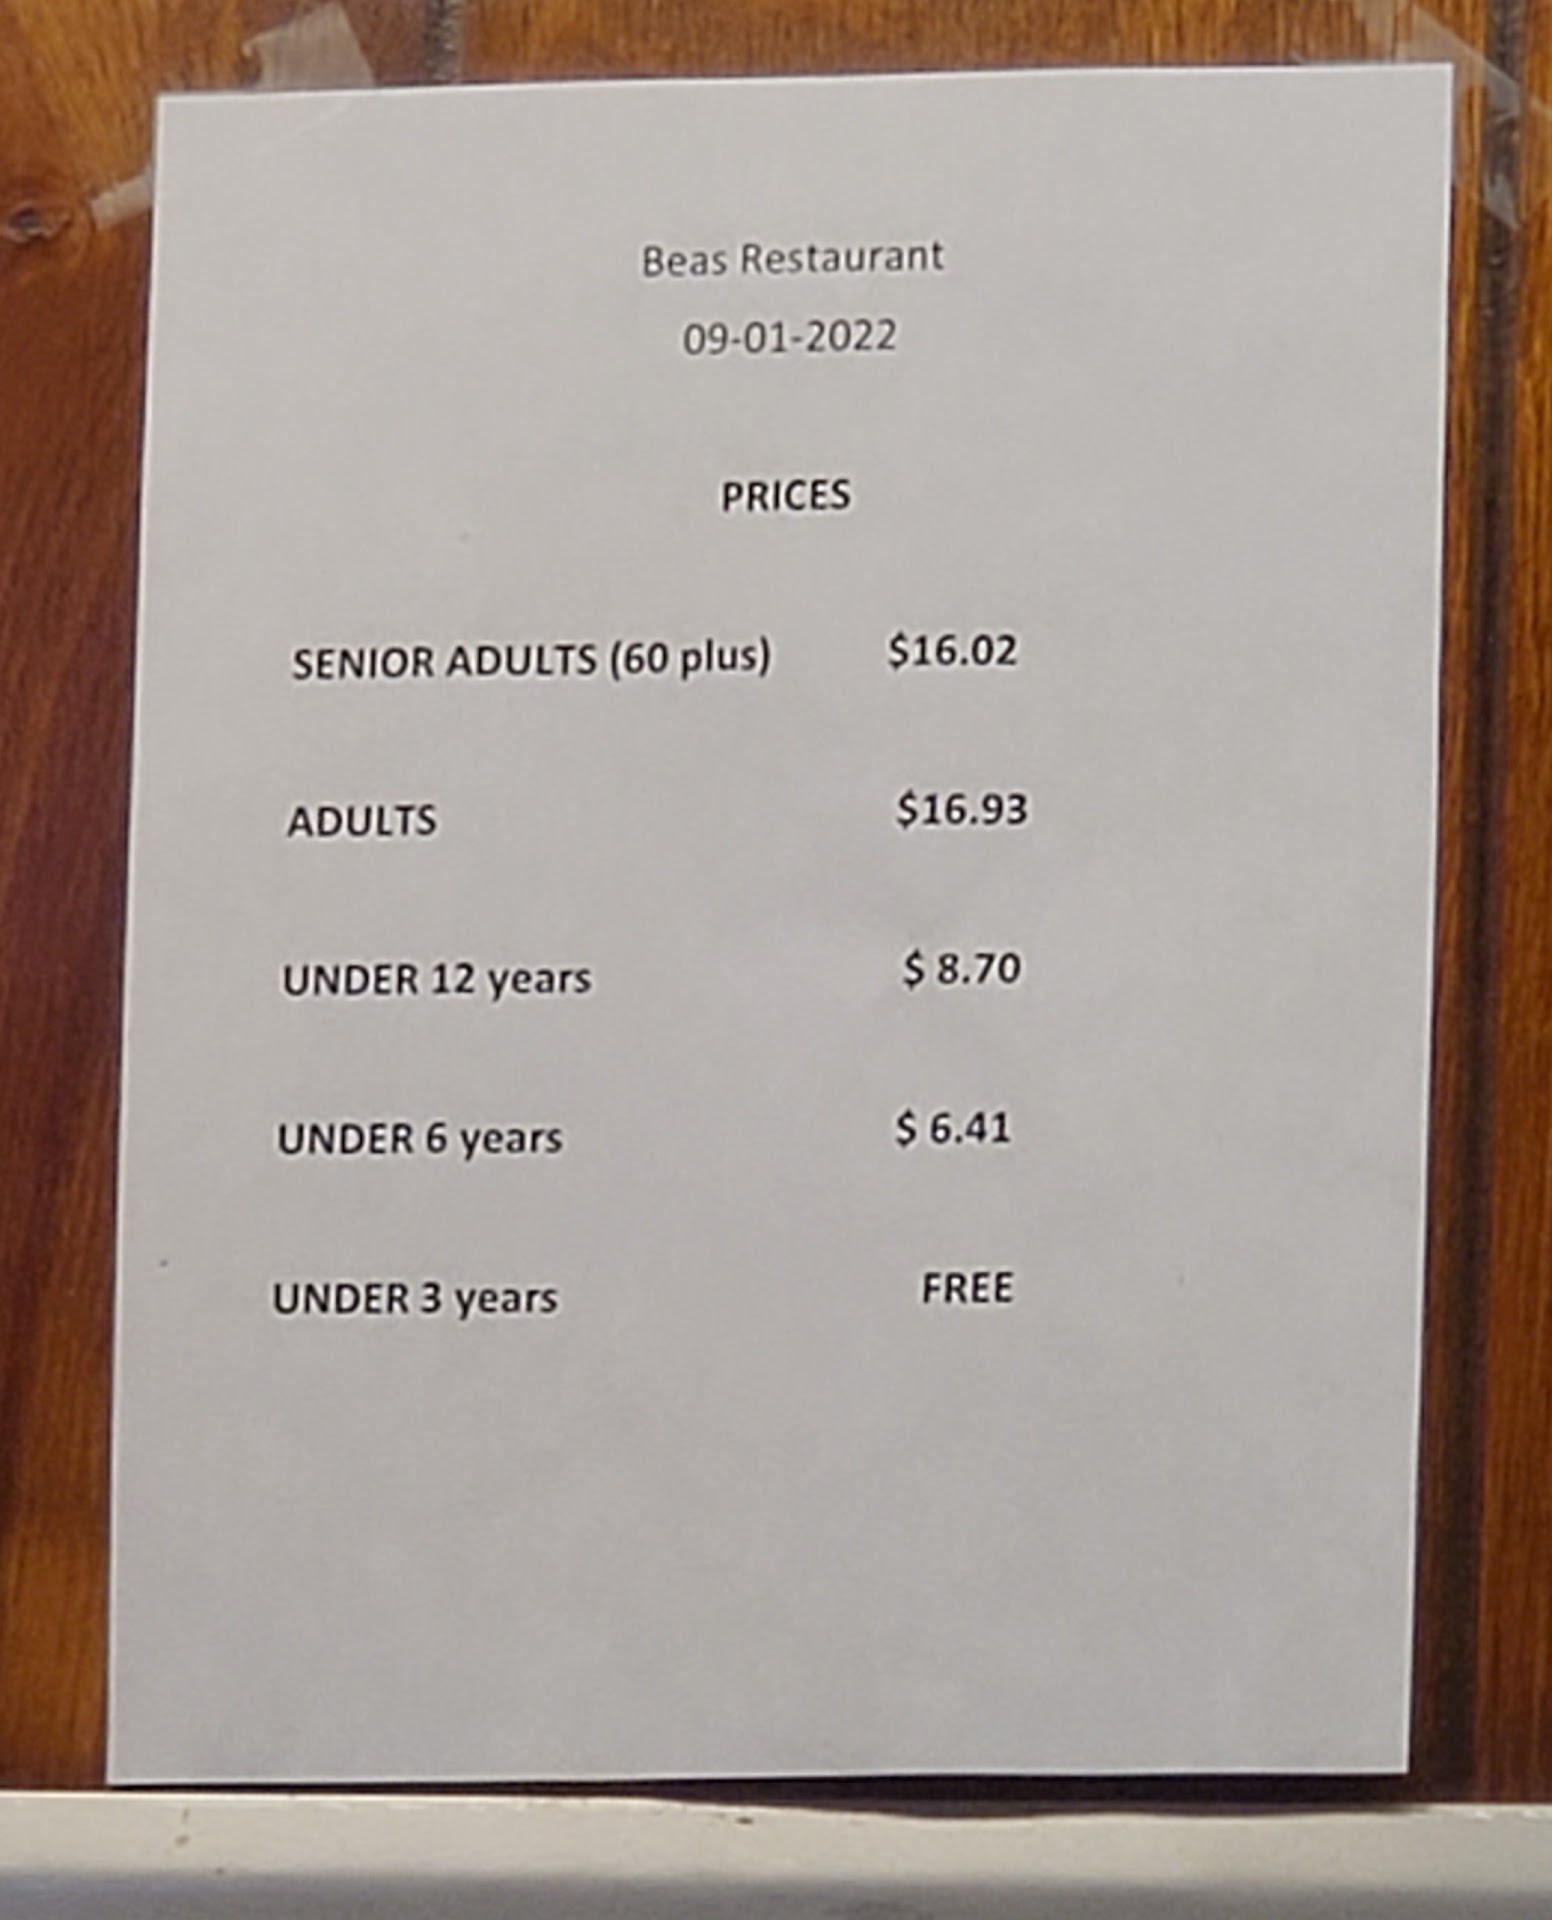 Beas Restaurant
09-01-2022
PRICES
SENIOR ADULTS (60 plus) $16.02
ADULTS $16.93
UNDER 12 years $ 8.70
UNDER 6 years $ 6.41
UNDER 3 years FREE